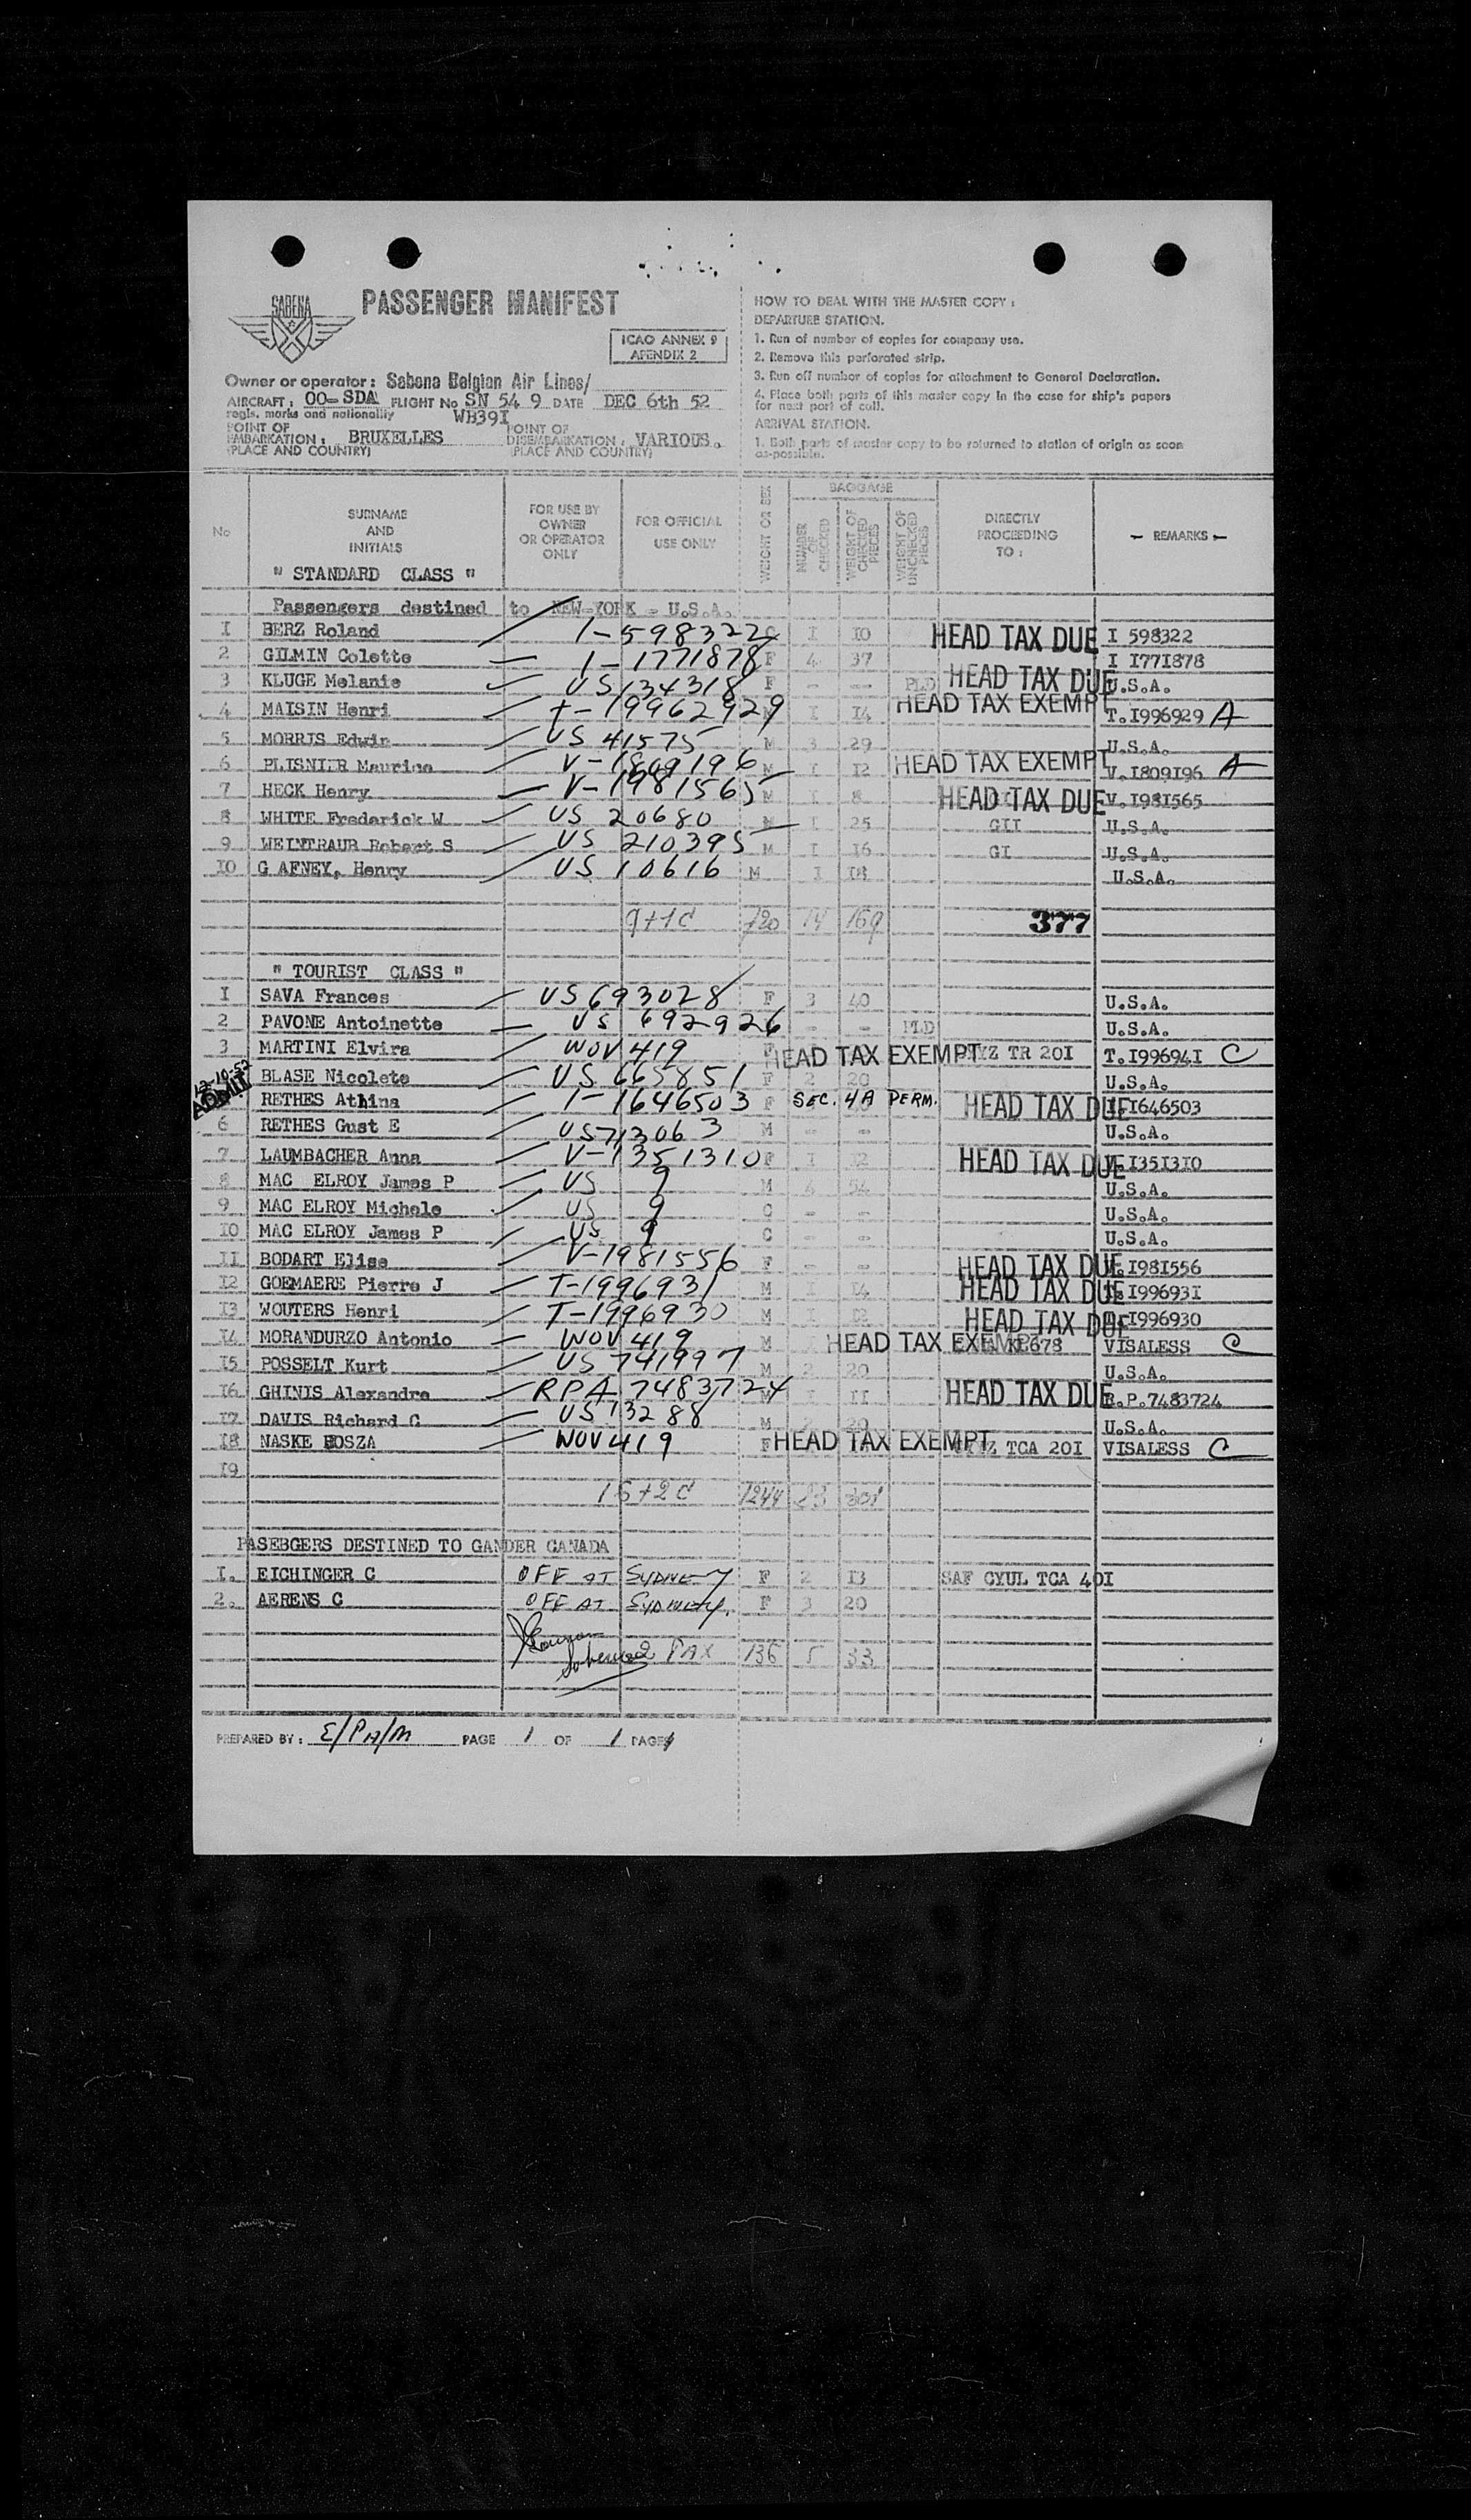 SABENA
PASSENGER MANIFEST
ICAO ANNEX 9
APENDIX 2
Owner or operator: Sabena Belgian Air Lines/
AIRCRAFT: OO-SDA FLIGHT No SN 54 9 DATE DEC 6th 52
regis. marks and nationality WB39I
POINT OF EMBARKATION: BRUXELLES POINT OF DISEMBARKATION: VARIOUS.
(PLACE AND COUNTRY) (PLACE AND COUNTRY)
HOW TO DEAL WITH THE MASTER COPY:
DEPARTURE STATION.
1. Run of number of copies for company use.
2. Remove this perforated strip.
3. Run off number of copies for attachment to General Declaration.
4. Place both parts of this master copy in the case for ship's papers
for next part of call.
ARRIVAL STATION.
1. Both parts of master copy to be returned to station of origin as soon
as-possible.
No SURNAME AND INITIALS FOR USE BY OWNER OR OPERATOR ONLY FOR OFFICIAL USE ONLY WEIGHT OR SEX BAGGAGE NUMBER OF CHECKED WEIGHT OF CHECKED PIECES WEIGHT OF UNCHECKED PIECES DIRECTLY PROCEEDING TO: — REMARKS —
" STANDARD CLASS "
Passengers destined to NEW-YORK - U.S.A.
I BERZ Roland I-598322 C I IO HEAD TAX DUE I 598322
2 GILMIN Colette I-1771878 F 4 37 I I77I878
3 KLUGE Melanie US 134318 F - -- PLD HEAD TAX DUE U.S.A.
4 MAISIN Henri T-19962929 I I4 HEAD TAX EXEMPT T.I996929 A
5 MORRIS Edwin US 41575 M 3 29 U.S.A.
6 PLISNIER Maurice V-1809196 M I I2 HEAD TAX EXEMPT V.I809I96 A
7 HECK Henry V-1981565 M I 8 HEAD TAX DUE V.I98I565
8 WHITE Frederick W US 20680 M I 25 GII U.S.A.
9 WEINTRAUB Robert S US 210395 M I I6 GI U.S.A.
IO G AFNEY, Henry US 10616 M I I8 U.S.A.
9+1C 720 14 169 377
" TOURIST CLASS "
I SAVA Frances US 693028 F 3 40 U.S.A.
2 PAVONE Antoinette US 692926 - - PLD U.S.A.
3 MARTINI Elvira WOV 419 F HEAD TAX EXEMPT YZ TR 20I T.I99694I C
12-10-52 ADMIT
BLASE Nicolete US 665851 F 2 20 U.S.A.
RETHES Athina I-1646503 F SEC. 4A PERM. HEAD TAX DUE I646503
6 RETHES Gust E US 713063 M - - U.S.A.
7 LAUMBACHER Anna V-1351310 F I I2 HEAD TAX DUE I35I3IO
8 MAC ELROY James P US 9 M 4 54 U.S.A.
9 MAC ELROY Michele US 9 C - - U.S.A.
IO MAC ELROY James P US 9 C - - U.S.A.
II BODART Elise V-1981556 F - - HEAD TAX DUE I98I556
I2 GOEMAERE Pierre J T-1996931 M I I4 HEAD TAX DUE I99693I
I3 WOUTERS Henri T-1996930 M I I2 HEAD TAX DUE I996930
I4 MORANDURZO Antonio WOV 419 M HEAD TAX EXEMPT KL678 VISALESS C
I5 POSSELT Kurt US 741997 M 2 20 U.S.A.
I6 GHINIS Alexandre RPA 7483724 M I II HEAD TAX DUE R.P.7483724
I7 DAVIS Richard C US 13288 M 2 20 U.S.A.
I8 NASKE ROSZA WOV 419 F HEAD TAX EXEMPT TCA 20I VISALESS C
I9
16+2C 1244 23 301
PASEBGERS DESTINED TO GANDER CANADA
I. EICHINGER C OFF AT SYDNEY F 2 I3 SAF CYUL TCA 40I
2. AERENS C OFF AT SYDNEY. F 3 20
2 PAX 136 5 33
PREPARED BY: E/PA/M PAGE 1 OF 1 PAGES